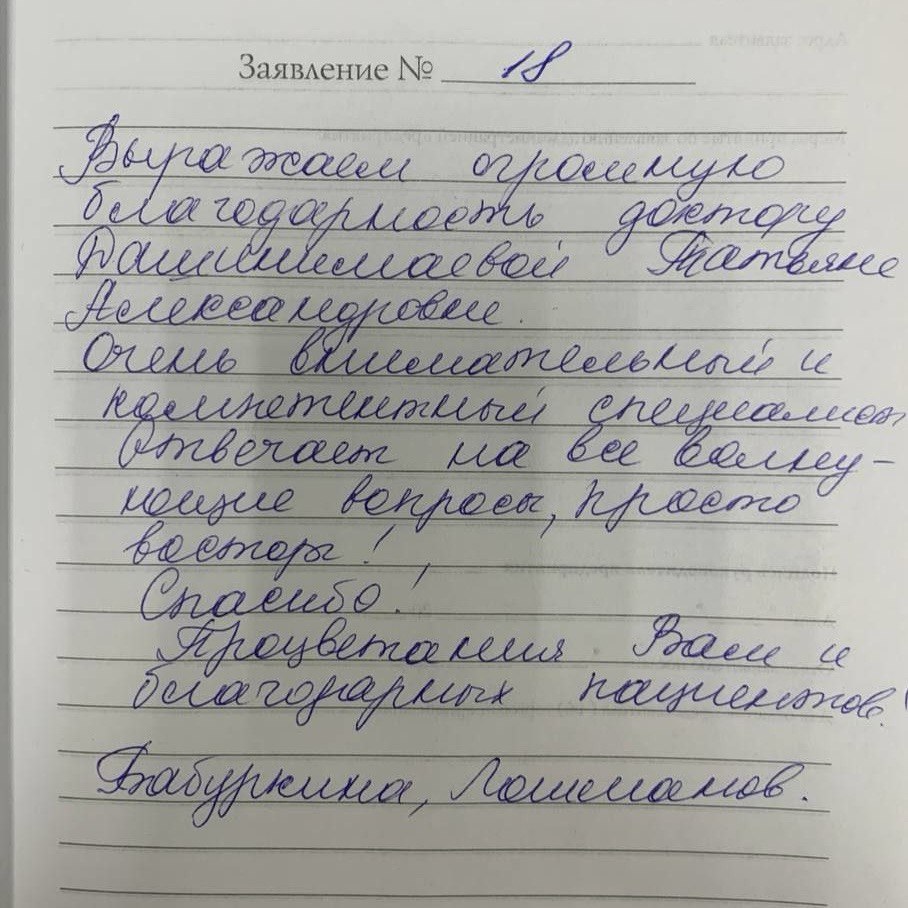 Заявление № 18
Выражаем огромную
благодарность доктору
Дашинимаевой Татьяне
Александровне.
Очень внимательный и
компетентный специалист
Отвечает на все волну-
ющие вопросы, просто
восторг!
Спасибо!
Процветания Вам и
благодарных пациентов!
Бабуркина, Лошманов.